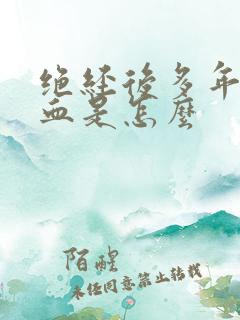 绝经后多年
血是怎麼
陌醒
未经同意禁止转载